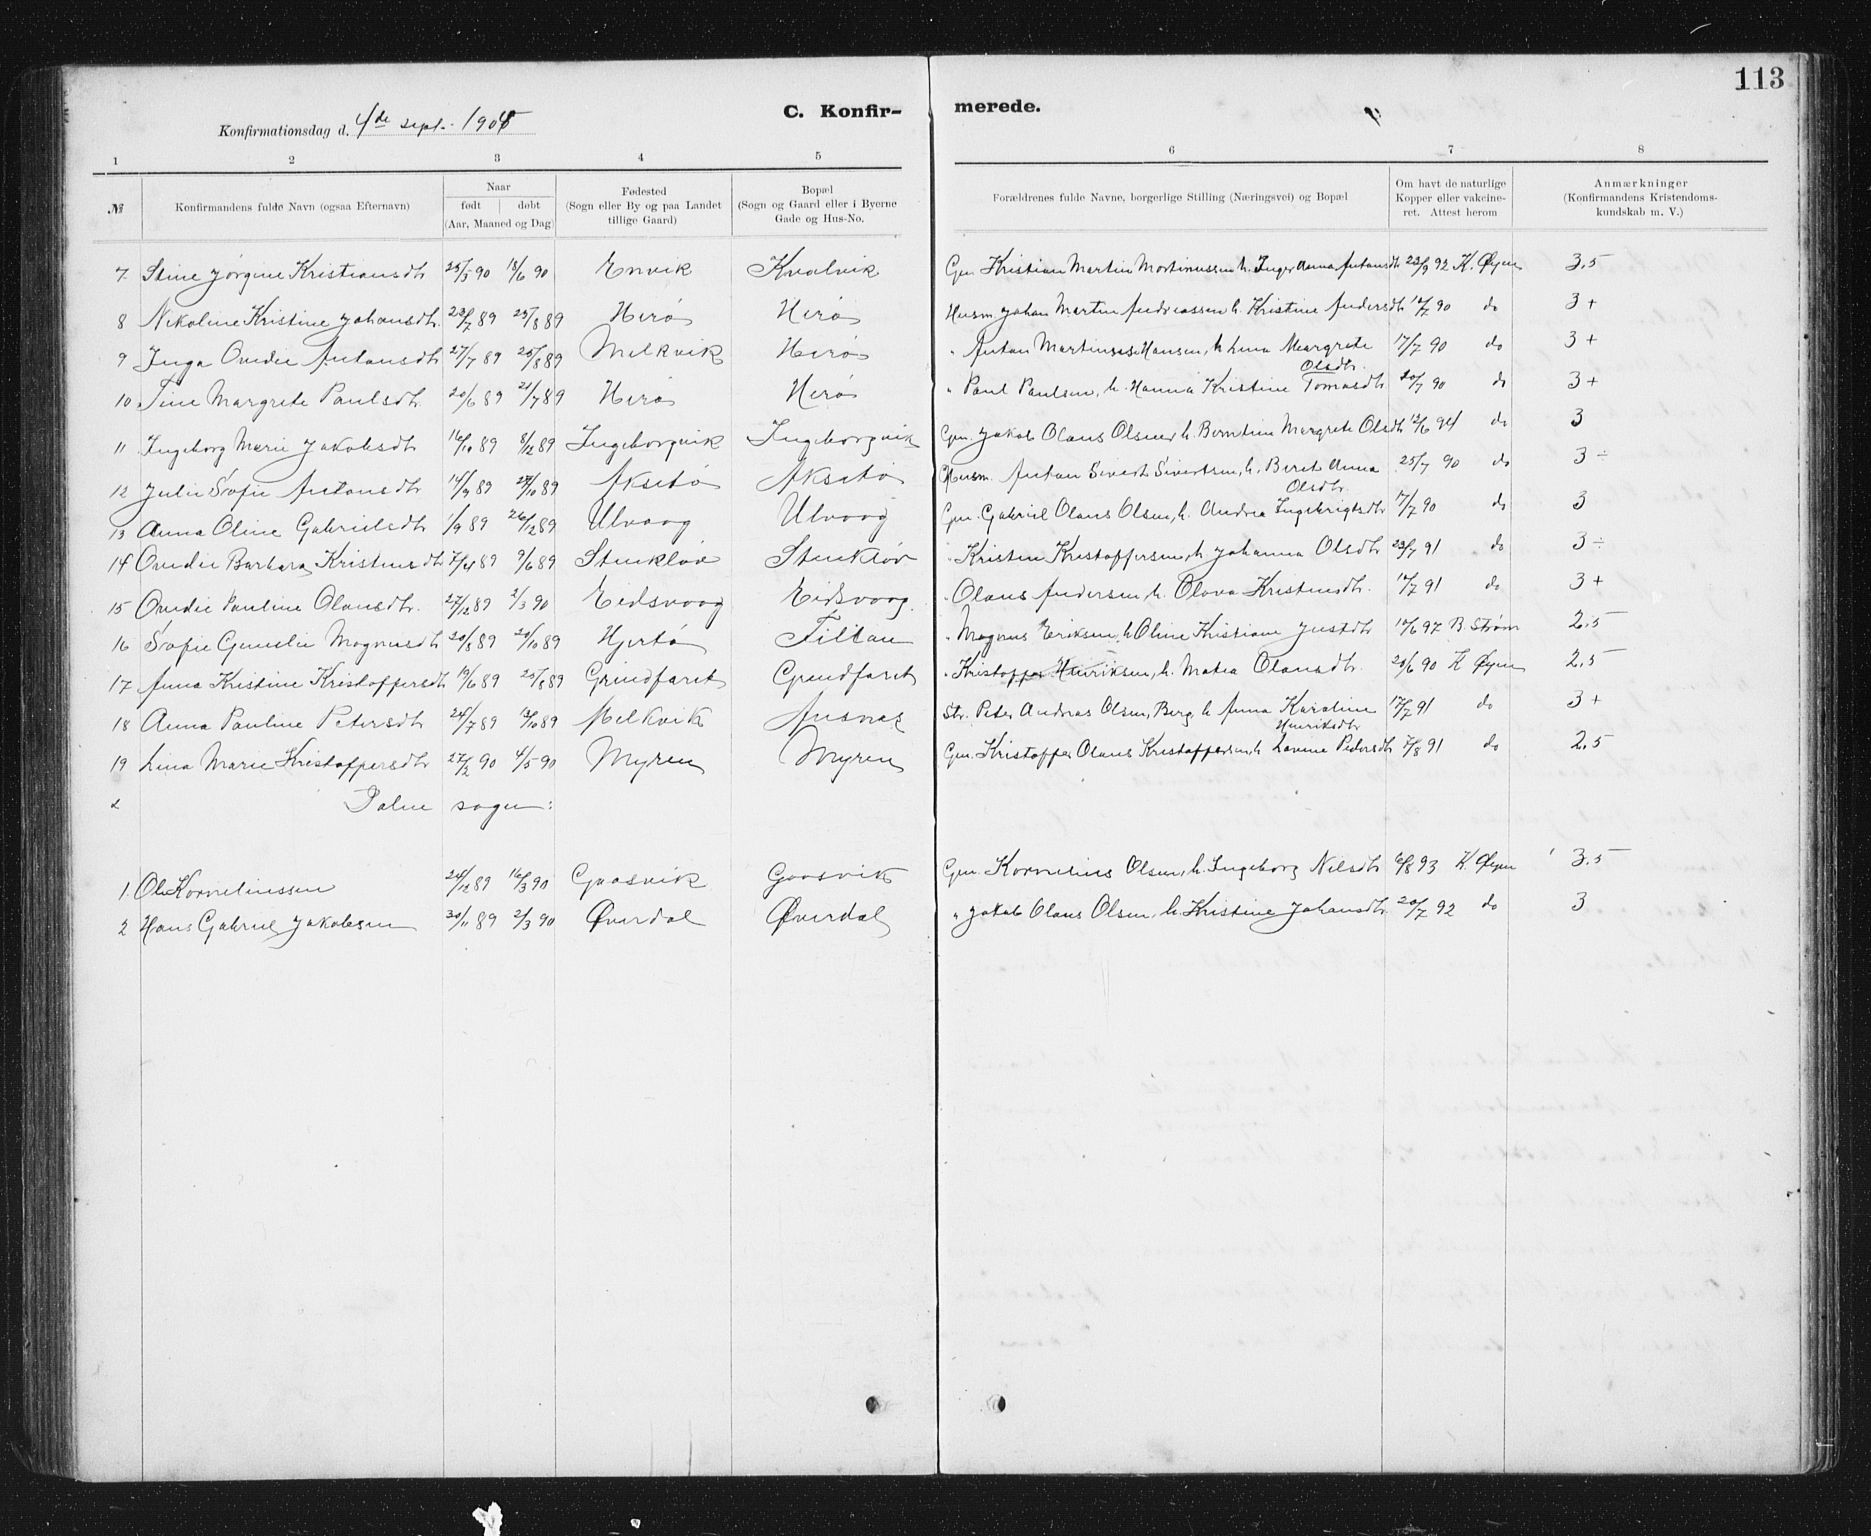 113
C. Konfir- merede.
Konfirmationsdag d. 4de sept. 1904
1 2 3 4 5 6 7 8
№ Konfirmandens fulde Navn (ogsaa Efternavn) Naar født døbt (Aar, Maaned og Dag) Fødested (Sogn eller By og paa Landet tillige Gaard) Bopæl (Sogn og Gaard eller i Byerne Gade og Hus-No. Forældrenes fulde Navne, borgerlige Stilling (Næringsvei) og Bopæl Om havt de naturlige Kopper eller vakcineret. Attest herom Anmærkninger (Konfirmandens Kristendomskundskab m. V.)
7 Stine Jørgine Kristiansdtr 25/3 90 18/6 90 Envik Kvalvik Gm. Kristian Martin Mortinussen h. Inger Anna Antonsdtr 23/9 92 K. Øyen 3,5
8 Nikoline Kristine Johansdtr 23/7 89 25/8 89 Herø Herø Husm. Johan Martin Andreassen h. Kristine Andersdtr 12/7 90 do 3+
9 Inga Ovidie Antonsdtr 27/7 89 25/8 89 Melkvik Herø " Anton Martinus Hansen, h. Lina Margrete Olsdtr. 17/7 90 do 3+
10 Tine Margrete Paulsdtr 20/6 89 21/7 89 Herø Herø " Paul Paulsen, h. Hanna Kristine Tomasdtr 20/7 90 do 3+
11 Ingeborg Marie Jakobsdtr 16/10 89 8/12 89 Ingeborgvik Ingeborgvik Gm. Jakob Olaus Olsen, h. Berntine Margrete Olsdtr 12/6 94 do 3
12 Julie Sofie Antonsdtr 14/9 89 27/10 89 Aksetø Aksetø Husm. Anton Sivert Sivertsen, h. Beret Anna Olsdtr. 25/7 90 do 3÷
13 Anna Oline Gabrielsdtr 1/9 89 26/12 89 Ulvaag Ulvaag Gm. Gabriel Olaus Olsen, h. Andrea Ingebrigtsdtr 17/7 90 do 3
14 Ovidie Barbara Kristensdtr 7/4 89 9/6 89 Stenkløv Stenkløv " Kristen Kristoffersen, h. Johanna Olsdtr 23/7 91 do 3÷
15 Ovidie Pauline Olausdtr. 27/12 89 2/3 90 Eidsvaag Eidsvaag. " Olaus Andersen, h. Olava Kristensdtr. 17/7 91 do 3+
16 Sofie Gunelie Magnusdtr 20/8 89 20/10 89 Hjertø Tiltan " Magnus Eriksen, h. Oline Kristiane Justdtr 14/6 97 B. Strøm 2,5
17 Anna Kristine Kristoffersdtr 19/6 89 25/8 89 Grindfaret Grindfaret " Kristoffer Henriksen, h. Matea Olausdtr. 20/6 90 K Øyen 2,5
18 Anna Pauline Petersdtr 24/7 89 13/10 89 Melkvik Ausnes Str. Peter Andreas Olsen, Berg, h. Anna Karoline Henriksdtr 17/7 91 do 3+
19 Lina Marie Kristoffersdtr 27/2 90 4/5 90 Myren Myren Gm. Kristoffer Olaus Kristoffersen, h. Lovine Pedersdtr 7/8 91 do 2,5
sogn:
1. Ole Korneliussen 24/12 89 16/3 90 Gaasvik Gaasvik Gm. Kornelius Olsen, h. Ingeborg Nilsdtr 6/8 93 K. Øyen 3,5
2 Hans Gabriel Jakobsen 30/11 89 2/3 90 Øverdal Øverdal " Jakob Olaus Olsen, h. Kristine Johansdtr. 20/7 92 do 3